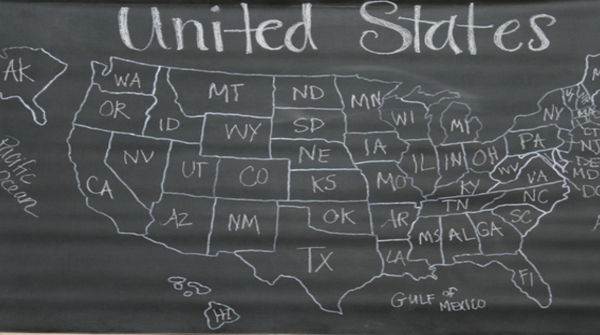 United States
AK
WA
MT
ND
MN
OR
ID
WY
SD
WI
MI
NY
NV
UT
CO
NE
IA
IL
IN
OH
PA
CA
KS
MO
KY
WV
VA
AZ
NM
OK
AR
TN
NC
SC
TX
LA
MS
AL
GA
FL
HI
Gulf of Mexico
Pacific
Ocean
CT
NJ
DE
MD